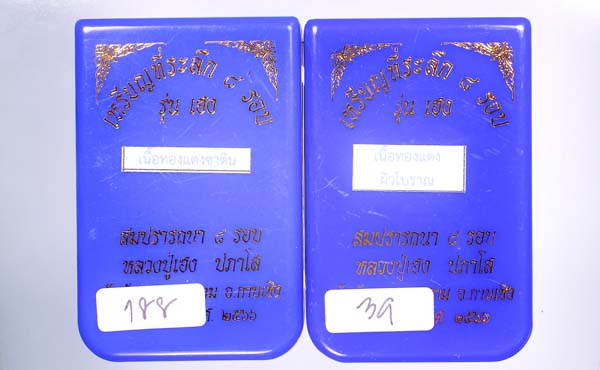 เหรียญที่ระลึก ๘ รอบ
รุ่น เฮง
เนื้อทองแดงซาติน
สมปรารถนา ๘ รอบ
หลวงปู่เฮง ปภาโส
อ.กาบเชิง
188
. ๒๕๖๖
เหรียญที่ระลึก ๘ รอบ
รุ่น เฮง
เนื้อทองแดง
ผิวโบราณ
สมปรารถนา ๘ รอบ
หลวงปู่เฮง ปภาโส
อ.กาบเชิง
39
ศ. ๒๕๖๖